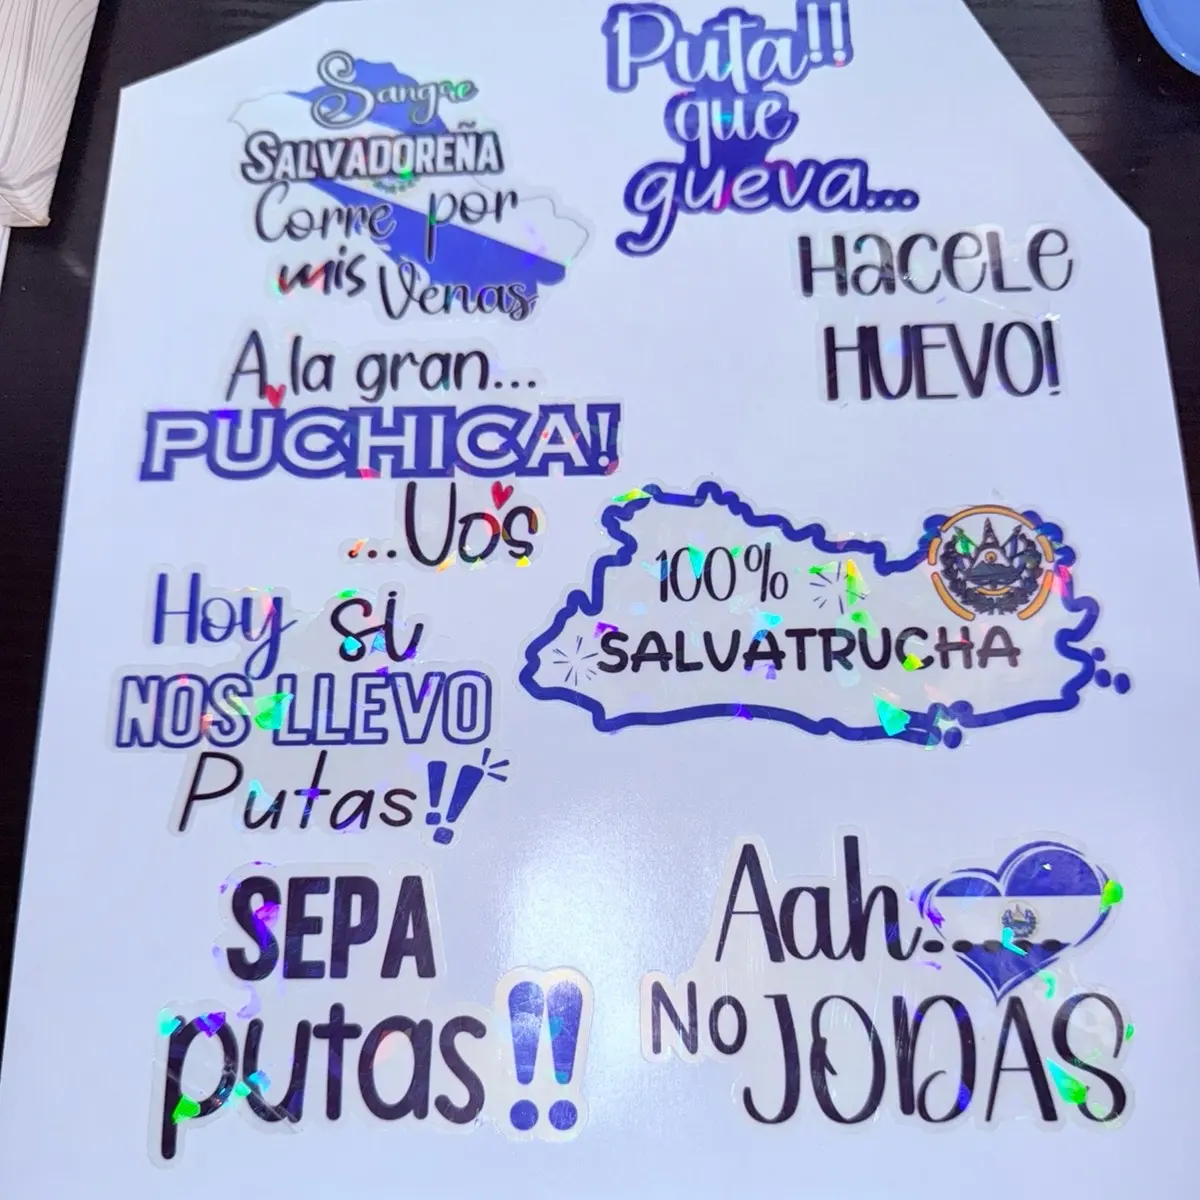 Sangre
SALVADOREÑA
Corre por
mis Venas
Puta!!
que
gueva...
HaceLe
HUEVO!
A la gran...
PUCHICA!
...Vos
100%
SALVATRUCHA
Hoy si
NOS LLEVO
Putas!!
SEPA
putas!!
Aah.....
No JODAS